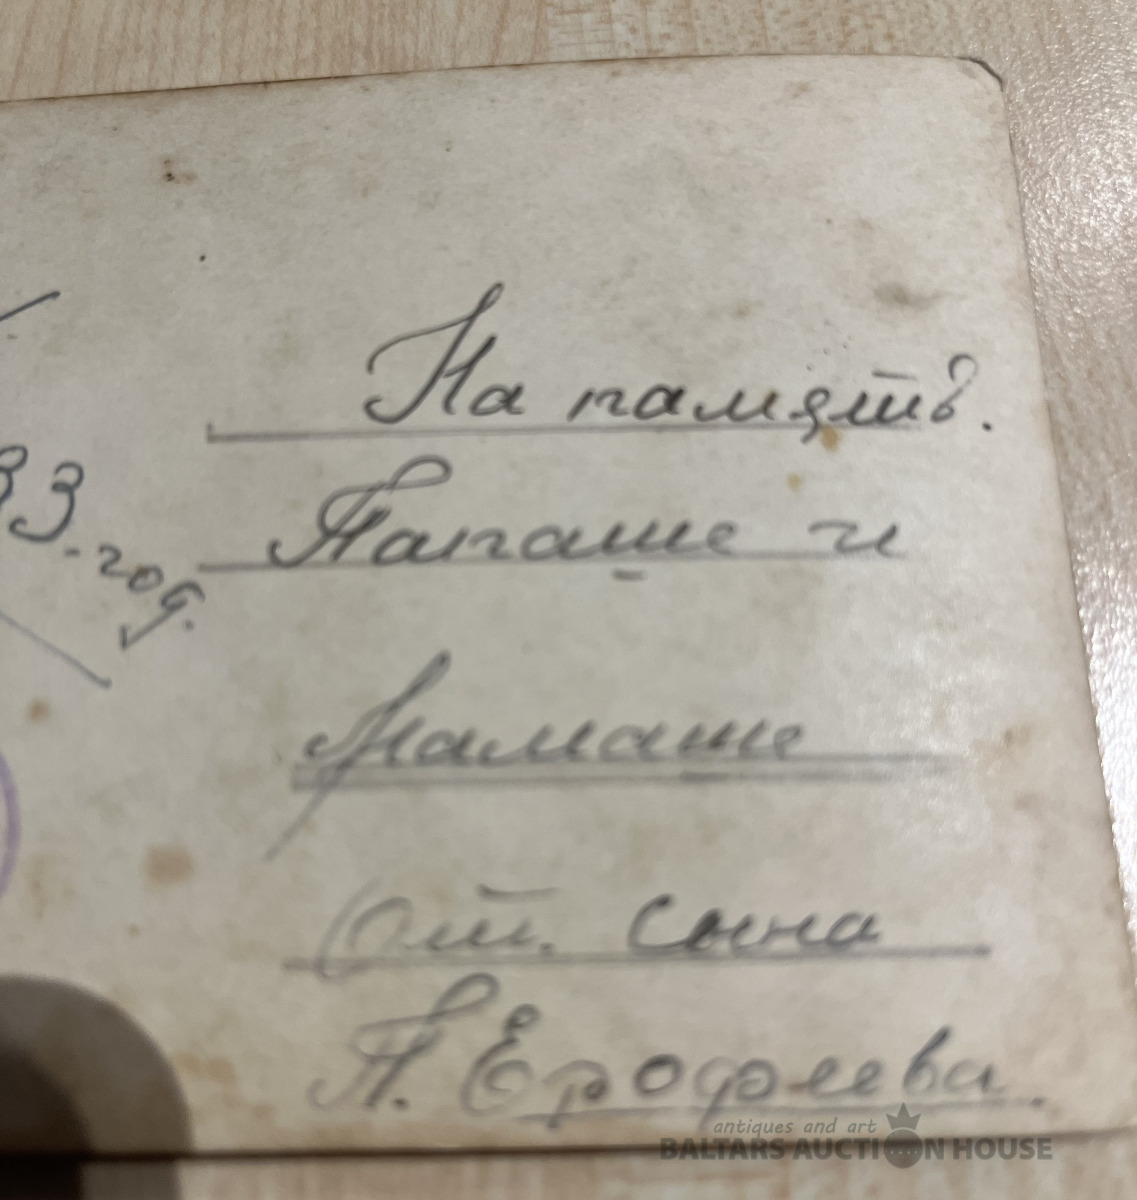 На память.
Папаше и
Мамаше
От. сына
П. Ерофеева.
33-год.
antiques and art
BALTARS AUCTION HOUSE